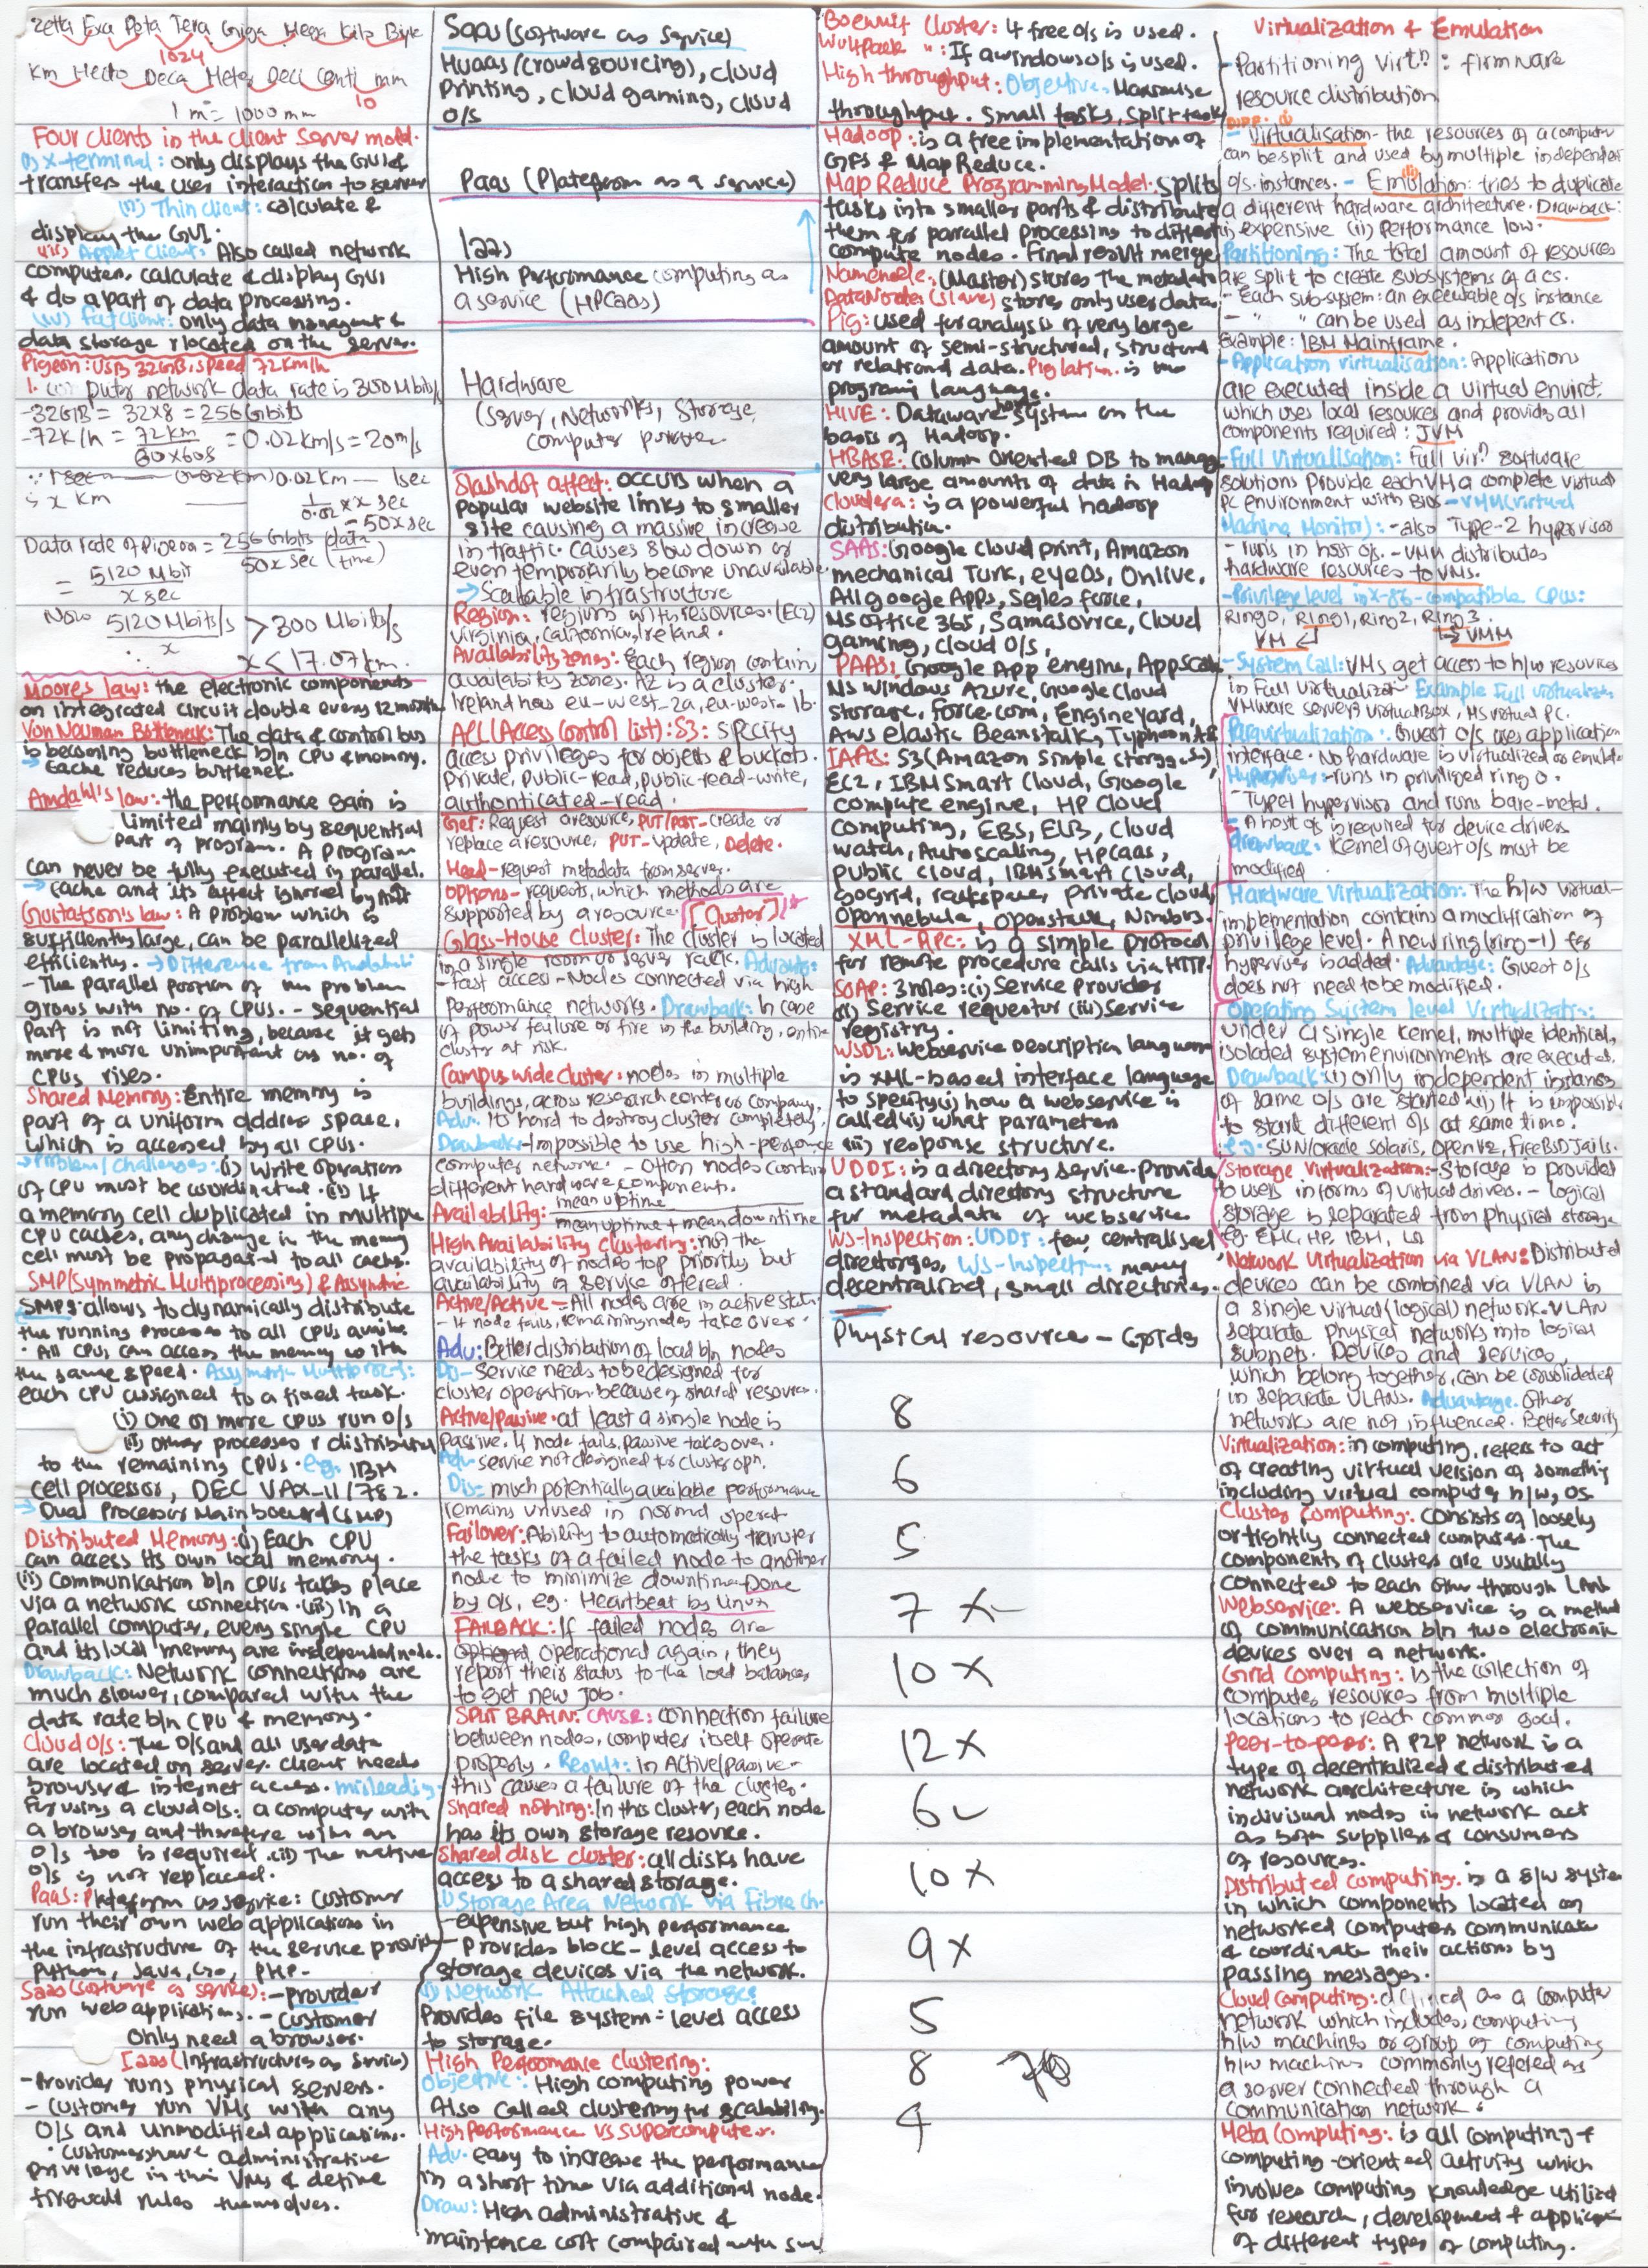 Zetta Exa Peta Tera Giga Mega Kilo Byte
1024
Km Hecto Deca Meter Deci Centi mm
10
1 m = 1000 mm
Four clients in the client server mold.
(i) X-terminal: only displays the GUI &
transfers the user interaction to server
(ii) Thin client: calculate &
display the GUI.
(iii) Applet Client: Also called network
computer, calculate & display GUI
& do a part of data processing.
(iv) fat client: only data managent &
data storage r located on the server.
Pigeon: USB 32GB, speed 72 Km/h
1. puter network data rate is 300 Mbit/s
-32GB = 32x8 = 256 Gbits
-72K/h = 72 km / 60x60s = 0.02 km/s = 20m/s
0.02 Km — 1 sec
x Km — 1/0.02 x x sec
= 50x sec
Data rate of Pigeon = 256 Gbits / 50x sec (data / time)
= 5120 Mbit / x sec
Now 5120 Mbits/s / x > 300 Mbits/s
∴ x < 17.07 km.
Moores law: the electronic components
on integrated circuit double every 12 month
Von Neuman Bottleneck: The data & control bus
is becoming bottleneck b/n CPU & memory.
→ Cache reduces bottlenek.
Amdahl's law: the performance gain is
limited mainly by sequential
part of program. A Program
can never be fully executed in parallel.
→ Cache and its effect ignored by
Gustafson's law: A problem which is
sufficiently large, can be parallelized
efficiently. → Difference from Amdahl
- The parallel portion of problem
grows with no. of CPUs. - sequential
part is not limiting, because it gets
more & more unimportant as no. of
CPUs rises.
Shared Memory: Entire memory is
part of a uniform address space,
which is accessed by all CPUs.
→ Problem/Challenges: (i) Write operation
of CPU must be coordinated. (ii) If
a memory cell duplicated in multiple
CPU caches, any change in the memory
cell must be propagated to all cache.
SMP (Symmetric Multiprocessing) & Asymetric
SMPs: allows to dynamically distribute
the running process to all CPUs
• All CPUs can access the memory with
the same speed. Asymetric
each CPU assigned to a fixed task.
(i) One or more CPUs run O/S
(ii) Other processes r distributed
to the remaining CPUs. e.g. IBM
cell processor, DEC VAX-11/782.
→ Dual Processor Mainboard (SMP)
Distributed Memory: (i) Each CPU
can access its own local memory.
(ii) Communication b/n CPUs takes place
via a network connection. (iii) In a
Parallel computer, every single CPU
and its local memory are independent node.
Drawback: Network connections are
much slower, compared with the
data rate b/n CPU & memory.
Cloud O/S: The O/S and all user data
are located on server. client needs
browser & internet access. misleading
for using a cloud O/s: a computer with
a browser and therefore with an
O/s too is required. (ii) The native
O/s is not replaced.
PaaS: Plateform as service: customer
run their own web applications in
the infrastructure of the service provider
Python, Java, Go, PHP.
SaaS (software as service): - provider
run web applications. - customer
only need a browser.
IaaS (Infrastructure as Service)
- Provider runs physical servers.
- Customer run VMs with any
O/S and unmodified application.
• Customers have administrative
privilege in their VMs & define
firewall rules themselves.
SaaS (Software as Service)
HuaaS (crowdsourcing), cloud
Printing, cloud gaming, cloud
O/S
PaaS (Plateform as a service)
IaaS
High Performance computing as
a service (HPCaaS)
Hardware
(server, Networks, Storage,
computer power
Slashdot affect: occurs when a
popular website links to smaller
site causing a massive increase
in traffic. Causes slow down or
even temporarily become unavailable
→ Scaleable infrastructure
Region: regions with resources. (EC2)
Virginia, California, Ireland.
Availability zones: Each region contain
availability zones. AZ is a cluster.
Ireland has eu-west-2a, eu-west-1b.
ACL (Access control list): S3: specify
access privileges for objects & buckets.
Private, public-read, public-read-write,
authenticated-read.
Get: Request a resource, PUT/POST- create or
replace a resource, PUT- update, Delete.
Head - request metadata from server.
Options - requests, which methods are
supported by a resource. [Cluster]
Glass-House Cluster: The cluster is located
in a single room or server rack. Advants:
- fast access - Nodes connected via high
performance networks. Drawback: In case
of power failure or fire in the building, entire
cluster at risk.
Campus wide cluster: nodes in multiple
buildings, across research center or company,
Adv: Its hard to destroy cluster completely.
Drawbacks - Impossible to use high-performance
computer network. - Often nodes contain
different hardware component.
Availability: mean uptime / mean uptime + mean downtime
High Availability clustering: not the
availability of nodes top priority but
availability of service offered.
Active/Active - All nodes are in active state
- If node fails, remaining nodes take over.
Adv: Better distribution of load b/n nodes
Dis - Service needs to be designed for
cluster operation because of shared resource.
Active/Passive - at least a single node is
passive. If node fails, passive takes over.
Adv - service not designed for cluster opn.
Dis - much potentially available performance
remains unused in normal operat
Failover: Ability to automatically transfer
the tasks of a failed node to another
node to minimize downtime. Done
by O/S, eg. Heartbeat by Linux
FAILBACK: If failed nodes are
operational again, they
report their status to the load balancer
to get new job.
SPLIT BRAIN: CAUSE: connection failure
between nodes, computer itself operate
properly. Result: in Active/passive -
this causes a failure of the cluster.
Shared nothing: In this cluster, each node
has its own storage resource.
Shared disk cluster: all disks have
access to a shared storage.
i) Storage Area Network via Fibre ch.
- expensive but high performance
- Provides block-level access to
storage devices via the network.
ii) Network Attached Storage:
Provides file system-level access
to storage.
High Performance Clustering:
Objective: High computing power
Also called clustering for scalability.
High Performance VS supercomputer.
Adv. easy to increase the performance
in a short time via additional node.
Draw: High administrative &
maintence cost compaired with
Boewulf Cluster: If free O/s is used.
Wulfpack ": If a windows o/s is used.
High throughput: Objective. Maximise
throughput. Small tasks, split task
Hadoop: is a free implementation of
GFS & Map Reduce.
Map Reduce Programming Model: Splits
tasks into smaller parts & distribute
them for parallel processing to different
compute nodes. Final result merge
Namenode: (Master) stores the metadata
DataNodes (slave) stores only user data.
Pig: used for analysis of very large
amount of semi-structured, structured
or relational data. Pig latin. is the
programing language.
HIVE: Dataware house system on the
basis of Hadoop.
HBASE: Column Oriented DB to manage
very large amounts of data in Hadoop
Cloudera: is a powerful hadoop
distribution.
SAAS: Google cloud print, Amazon
mechanical Turk, eyeOs, Onlive,
All google Apps, Sales force,
MS office 365, Samasource, Cloud
gaming, cloud O/S,
PAAS: Google App engine, AppScale
MS Windows Azure, Google Cloud
storage, force.com, Engineyard,
AWS Elastic Beanstalk, Typhoon AE
IAAS: S3 (Amazon simple storage S),
EC2, IBM Smart Cloud, Google
compute engine, HP Cloud
Computing, EBS, ELB, Cloud
watch, Autoscaling, HPCaas,
public cloud, IBM smart Cloud,
Gogrid, rackspace, private cloud,
Opennebula, Openstack, Nimbus.
XML-RPC: is a simple protocol
for remote procedure calls via HTTP.
SOAP: 3 roles: (i) Service Provider
(ii) Service requestor (iii) Service
registry.
WSDL: Webservice Description language
is XML-based interface language
to specify (i) how a webservice is
called (ii) what parameters
(iii) response structure.
UDDI: is a directory service. provide
a standard directory structure
for metadata of webservice
WS-Inspection: UDDI: few, centralised
directories, WS-Inspection: many
decentralized, small directories.
Physical resource - Grids
8
6
5
7 x
10 x
12 x
6 ✓
10 x
9 x
5
8
4
Virtualization & Emulation
- Partitioning Virtn: firmware
resource distribution
Diff. (i)
- Virtualisation - the resources of a computer
can be split and used by multiple independent
o/s. instances. - Emulation: tries to duplicate
a different hardware architecture. Drawback:
(i) expensive (ii) Performance low.
Partitioning: The total amount of resources
are split to create subsystems of a cs.
- Each sub-system: an executable o/s instance
- " " can be used as indepent cs.
Example: IBM Mainframe.
- Application virtualisation: Applications
are executed inside a virtual envirt.
which uses local resources and provids all
components required: JVM
- Full Virtualisation: Full virn software
solutions provide each VM a complete virtual
PC environment with BIOS - VMM (virtual
Machine Monitor): - also Type-2 hypervisor
- runs in host o/s. - VMM distributes
hardware resources to VMs.
- Privilege level in x-86-compatible CPUs:
Ring0, Ring1, Ring2, Ring3.
VM VMM
- System Call: VMs get access to h/w resources
in Full Virtualizatn Example Full virtualizn
VMware server, VirtualBox, MS virtual PC.
Paravirtualization: Guest O/s uses application
interface. No hardware is virtualized or emulate
Hypervisor: - runs in privileged ring 0.
- Type1 hypervisor and runs bare-metal.
- A host os is required for device drivers
drawback: Kernel of guest o/s must be
modified.
Hardware Virtualization: The h/w virtual-
implementation contains a modification of
privilege level. A new ring (ring-1) for
hyperviser is added. Advantage: Guest o/s
does not need to be modified.
Operating System level Virtualization:
under a single kernel, multiple identical,
isoladed system environments are executed.
Drawback: (i) only independent instances
of same o/s are started (ii) It is impossible
to start different o/s at same time.
e.g. SUN/oracle Solaris, OpenVZ, FreeBSD Jails.
Storage Virtualization: - Storage is provided
to users in forms of virtual drivers. - logical
storage is separated from physical storage
eg. EMC, HP, IBM, LSI
Network Virtualization via VLAN: Distributed
devices can be combined via VLAN in
a single virtual (logical) network. VLAN
separate physical networks into logical
subnets. Devices and services,
which belong together, can be consolidated
in separate VLANs. Advantage. Other
networks are not influenced. Better security
Virtualization: in computing, refers to act
of creating virtual version of something
including virtual computer h/w, OS
Cluster Computing: Consists of loosely
or tightly connected computers. The
components of clusters are usually
connected to each other through LANs
Webservice: A webservice is a method
of communication b/n two electronic
devices over a network.
Grid Computing: Is the collection of
computer resources from multiple
locations to reach common goal.
Peer-to-peer: A P2P network is a
type of decentralized & distributed
network architecture in which
indivisual nodes in network act
as both suppliers & consumers
of resources.
Distributed computing. is a s/w system
in which components located on
networked computers communicate
& coordinate their actions by
passing messages.
Cloud computing: defined as a computer
network which includes, computing
h/w machines or group of computing
h/w machines commonly refered as
a server connected through a
communication network.
Meta Computing: is all computing &
computing-oriented activity which
involves computing knowledge utilized
for research, development & application
of different types of computing.